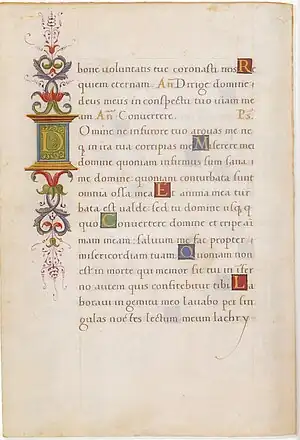 bone voluntatis tue coronasti nos Re
quiem eternam An Dirige domine
deus meus in conspectu tuo viam me
am An Convertere. Ps.
Domine ne in furore tuo arguas me ne
q in ira tua corripias me Miserere mei
domine quoniam infirmus sum sana
me domine quoniam conturbata sunt
omnia ossa mea Et anima mea tur
bata est valde sed tu domine usq
quo Convertere domine et eripe ani
mam meam: salvum me fac propter
misericordiam tuam Quoniam non
est in morte qui memor sit tui in ifer
no autem quis confitebitur tibi La
boravi in gemitu meo lavabo per sin
gulas noctes lectum meum lachry